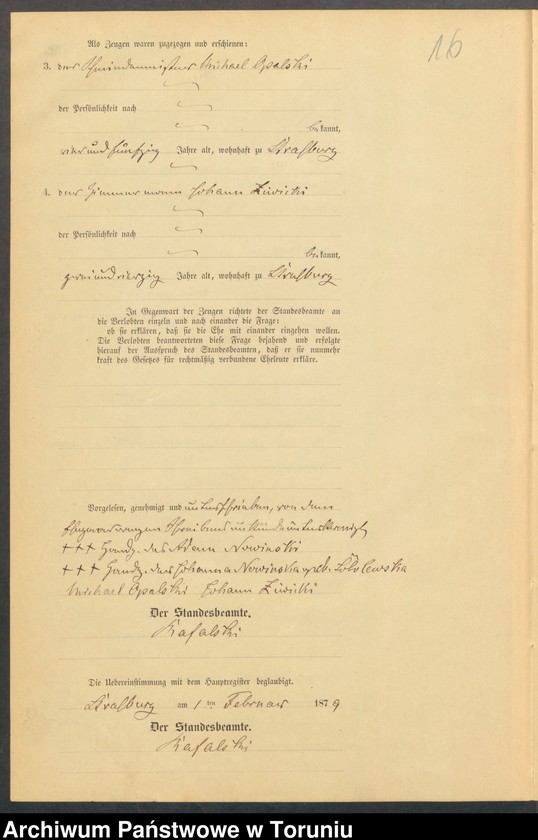 16
Als Zeugen waren zugezogen und erschienen:
3. der Michael Opalski
der Persönlichkeit nach
bekannt,
vier und fünfzig Jahre alt, wohnhaft zu Straßburg
4. der Zimmermann Johann Ziwicki
der Persönlichkeit nach
bekannt,
zwei und vierzig Jahre alt, wohnhaft zu Straßburg
In Gegenwart der Zeugen richtete der Standesbeamte an
die Verlobten einzeln und nach einander die Frage:
ob sie erklären, daß sie die Ehe mit einander eingehen wollen.
Die Verlobten beantworteten diese Frage bejahend und erfolgte
hierauf der Ausspruch des Standesbeamten, daß er sie nunmehr
kraft des Gesetzes für rechtmäßig verbundene Eheleute erkläre.
Vorgelesen, genehmigt und unterschrieben, von dem
Schreibens unkundig unterkreuzt
+++ Handz. des Adam Nowinski
+++ Handz. der Johanna Nowinska geb.
Michael Opalski Johann Ziwicki
Der Standesbeamte.
Kafalski
Die Uebereinstimmung mit dem Hauptregister beglaubigt.
Straßburg am 1 ten Februar 1879
Der Standesbeamte.
Kafalski
Archiwum Państwowe w Toruniu